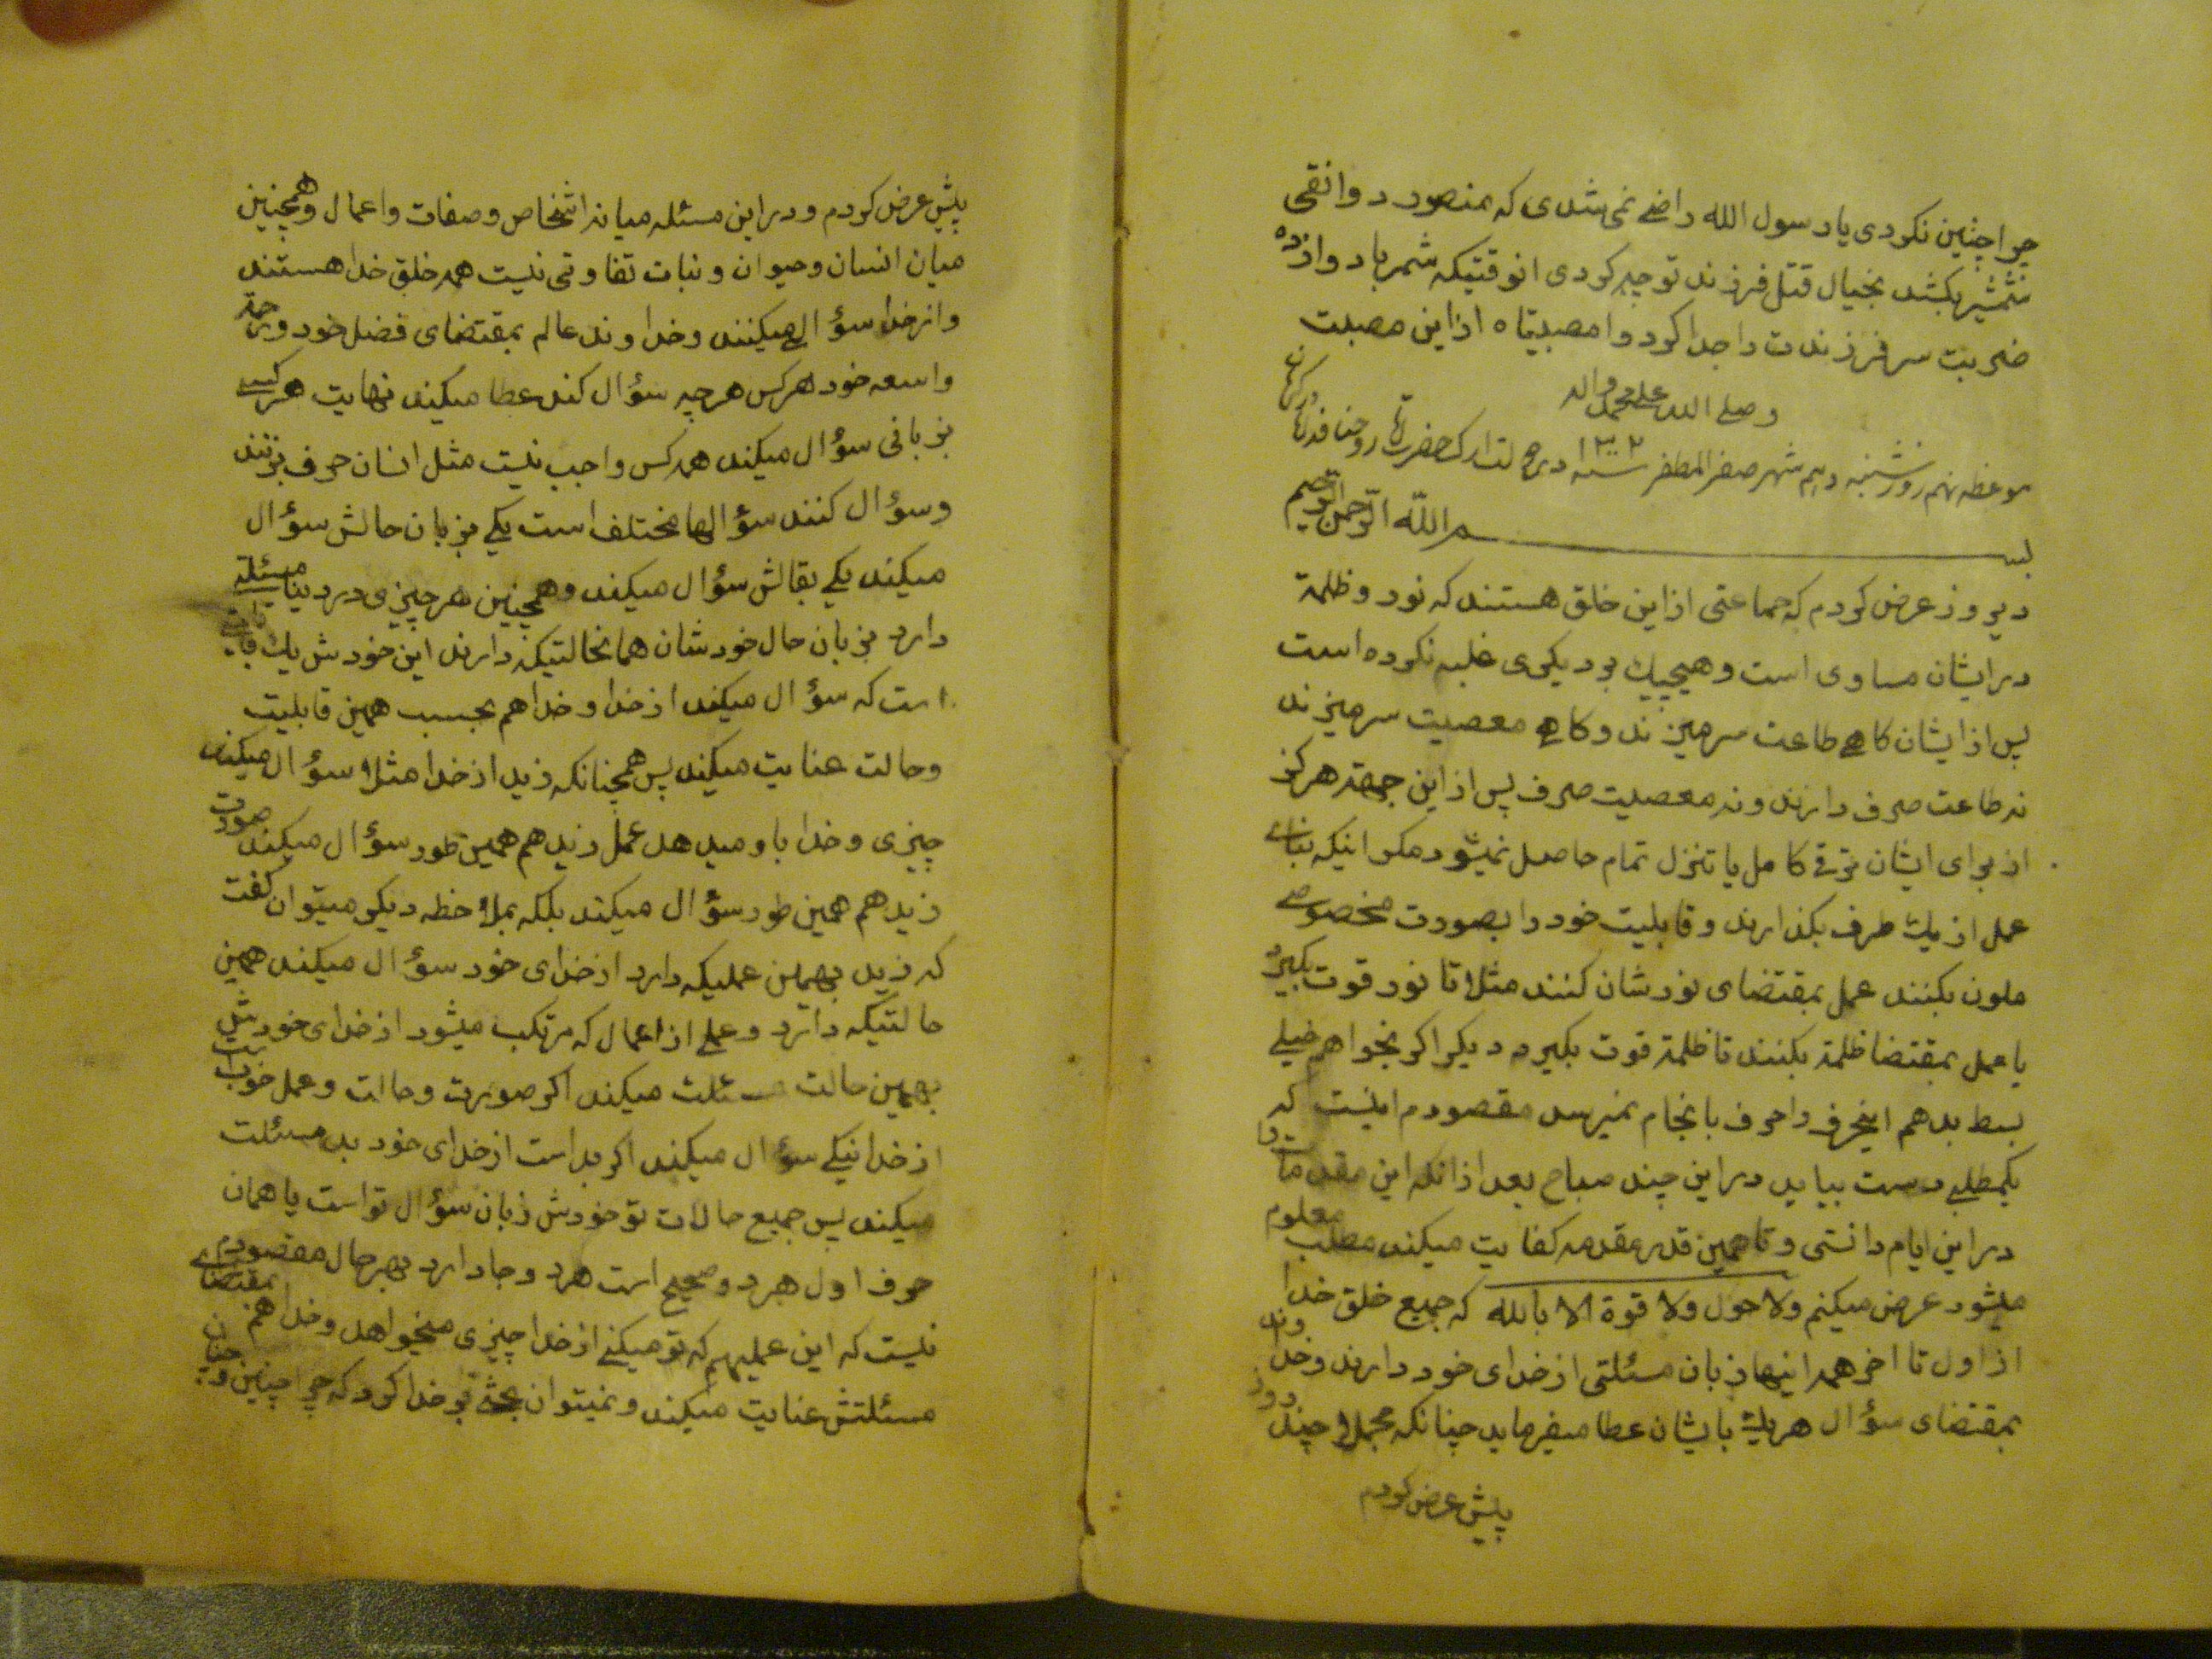 چرا چنین نکردی یا رسول الله راضی نمی شدی که منصور دوانقی
شمشیر بکشد بخیال قتل فرزند تو چه کردی انوقتیکه شمر با دوازده
ضربت سر فرزندت را جدا کرد وا مصیبتاه از این مصیبت
وصلی الله علی محمد واله
موعظه نهم روز شنبه دهم شهر صفر المظفر سنه ۱۳۰۲ در
بسم الله الرحمن الرحیم
دیروز عرض کردم که جماعتی از این خلق هستند که نور و ظلمة
در ایشان مساوی است و هیچیک بر دیگری غلبه نکرده است
پس از ایشان کاهی طاعت سر میزند و کاهی معصیت سر میزند
نه طاعت صرف دارند و نه معصیت صرف پس از این جهة هرکز
از برای ایشان ترقی کامل یا تنزل تمام حاصل نمیشود مکر اینکه بنای
عمل از یک طرف بکذارند و قابلیت خود را بصورت مخصوصی
ملون بکنند عمل بمقتضای نورشان کنند مثلا تا نور قوت بکیرد
یا عمل بمقتضا ظلمة بکنند تا ظلمة قوت بکیرد دیکر اکر بخواهم خیلی
بسط بدهم اینحرف را حرف بانجام نمیرسد مقصودم اینست که
یکمطلبی دست بیاید در این چند صباح بعد از انکه این مقدمات را
در این ایام دانستی و تا همین قدر مقدمه کفایت میکند مطلب معلوم
میشود عرض میکنم ولا حول ولا قوة الا بالله که جمیع خلق خدا
از اول تا اخر همه اینها زبان مسئلتی از خدای خود دارند و خداوند
بمقتضای سؤال هریک بایشان عطا میفرماید چنانکه مجملا چند روز
پیش عرض کردم
پیش عرض کردم و در این مسئله میانه اشخاص و صفات و اعمال و همچنین
میان انسان و حیوان و نبات تفاوتی نیست همه خلق خدا هستند
و از خدا سؤالی میکنند و خداوند عالم بمقتضای فضل خود و رحمة
واسعه خود هرکس هرچه سؤال کند عطا میکند نهایت هر کسی
بزبانی سؤال میکند همه کس واجب نیست مثل انسان حرف بزنند
و سؤال کنند سؤالها مختلف است یکی بزبان حالش سؤال
میکند یکی بقالش سؤال میکند و همچنین هر چیزی در دنیا مسئلة
دارد بزبان حال خودشان همانحالتیکه دارند این خودش یک قابلیتی
است که سؤال میکند از خدا و خدا هم بحسب همین قابلیت
و حالت عنایت میکند پس همچنانکه زید از خدا مثلا سؤال میکند
چیزی و خدا باو میدهد عمل زید هم همین طور سؤال میکند صورت
زید هم همین طور سؤال میکند بلکه بملاحظه دیکر میتوان کفت
که زید بهمین عملیکه دارد از خدای خود سؤال میکند همین
حالتیکه دارد و عملی از اعمال که مرتکب میشود از خدای خودش
بهمین حالت مسئلت میکند اکر صورت و حالت و عمل خوب است
از خدا نیکی سؤال میکند اکر بد است از خدای خود بد مسئلت
میکند پس جمیع حالات تو خودش زبان سؤال تو است یا همان
حرف اول هر دو صحیح است هر دو جا دارد بهر حال مقصودم
نیست که این عملیهم که تو میکنی از خدا چیزی میخواهد و خدا هم بمقتضای
مسئلتش عنایت میکند و نمیتوان بحثی بر خدا کرد که چرا چنین و چنان